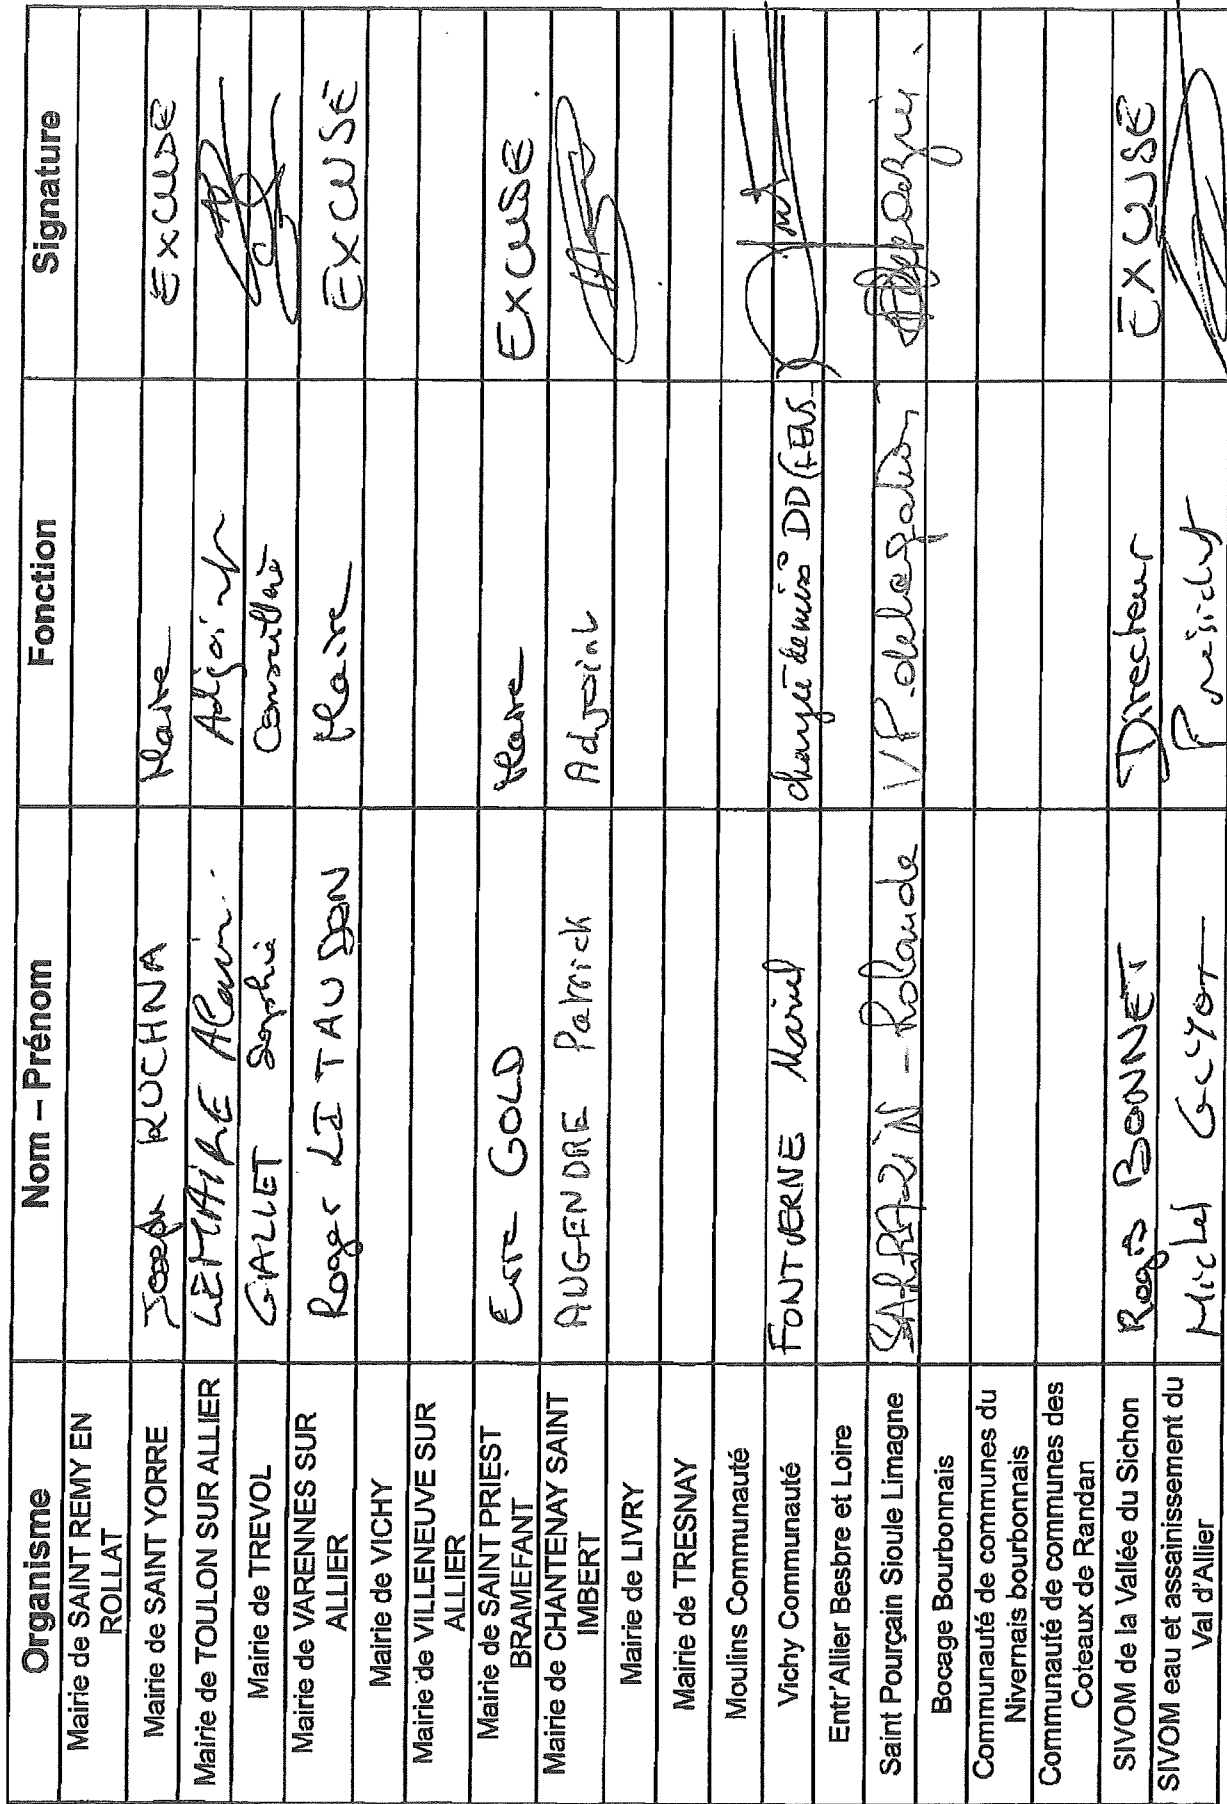 Organisme Nom – Prénom Fonction Signature
Mairie de SAINT REMY EN
ROLLAT
Mairie de SAINT YORRE Joseph KUCHNA Maire EXCUSE
Mairie de TOULON SUR ALLIER LEMAIRE Alain Adjoint
Mairie de TREVOL GALLET Sophie Conseillère
Mairie de VARENNES SUR
ALLIER Roger LITAUDON Maire EXCUSÉ
Mairie de VICHY
Mairie de VILLENEUVE SUR
ALLIER
Mairie de SAINT PRIEST
BRAMEFANT GOLD Maire EXCUSE
Mairie de CHANTENAY SAINT
IMBERT AUGENDRE Patrick Adjoint
Mairie de LIVRY
Mairie de TRESNAY
Moulins Communauté
Vichy Communauté FONTVERNE Mariel DD
Entr'Allier Besbre et Loire
Saint Pourçain Sioule Limagne SARRAZIN - Rolande VP
Bocage Bourbonnais
Communauté de communes du
Nivernais bourbonnais
Communauté de communes des
Coteaux de Randan
SIVOM de la Vallée du Sichon BONNET Directeur EXCUSÉ
SIVOM eau et assainissement du
Val d'Allier Michel GUYOT Président